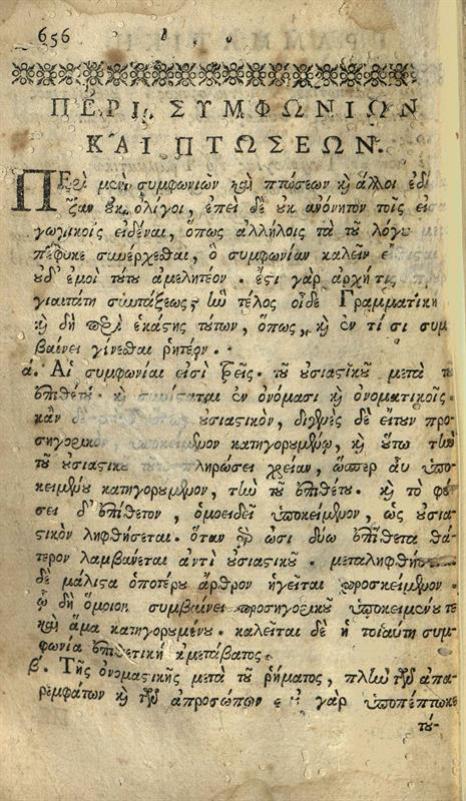 656
ΠΕΡΙ ΣΥΜΦΩΝΙΩΝ
ΚΑΙ ΠΤΩΣΕΩΝ.
ΠΕρὶ μὲν συμφωνιῶν καὶ πτώσεων κὶ ἄλλοι ἐδί-
ξαν οὐκ ὀλίγοι, ἐπεὶ δὲ οὐκ ἀνόνητον τοῖς εἰσα
γωγικοῖς εἰδέναι, ὅπως ἀλλήλοις τὰ τοῦ λόγου
πέφυκε συνέρχεσθαι, ὃ συμφωνίαν καλεῖν
οὐδ' ἐμοὶ τούτου ἀμελητέον. ἔστι γὰρ ἀρχή τις
συντάξεως, ἣν τέλος οἶδε Γραμματικὴ
κὶ δὴ περὶ ἑκάστης τούτων, ὅπως, κὶ ἐν τίσι συμ
βαίνει γίνεσθαι ῥητέον.
ά. Αἱ συμφωνίαι εἰσὶ τρεῖς. τοῦ οὐσιαστικοῦ μετὰ τοῦ
ἐπιθέτου. κὶ ἐν ὀνόμασι κὶ ὀνοματικοῖς.
κἂν οὐσιαστικὸν, δὲ εἴτουν προ-
σηγορικὸν, ὑποκείμενον κατηγορουμένῳ, κὶ οὕτω τὴν
τοῦ οὐσιαστικοῦ πληρώσει χρείαν, ὥσπερ αὖ ὑπο-
κειμένου κατηγορούμενον, τὴν τοῦ ἐπιθέτου. κὶ τὸ φύ-
σει δ' ἐπίθετον, ὁμοειδεῖ ὑποκείμενον, ὡς οὐσιασ-
τικὸν ληφθήσεται. ὅταν ὦσι δύω ἐπίθετα θά-
τερον λαμβάνεται ἀντὶ οὐσιαστικοῦ. μεταληφθή
δὲ μάλιστα ὁποτέρου ἄρθρον ἡγεῖται προσκείμενον.
ᾧ δὴ ὅμοιον συμβαίνει προσηγορικοῦ ὑποκειμένου τε
καὶ ἅμα κατηγορουμένου. καλεῖται δὲ ἡ τοιαύτη συμ-
φωνία ἐπιθετικὴ ἀμετάβατος.
β. Τῆς ὀνομαστικῆς μετὰ τοῦ ῥήματος, πλὴν τῶν ἀπα-
ρεμφάτων κὶ τῶν ἀπροσώπων γὰρ ὑποπέπτωκε
τού-